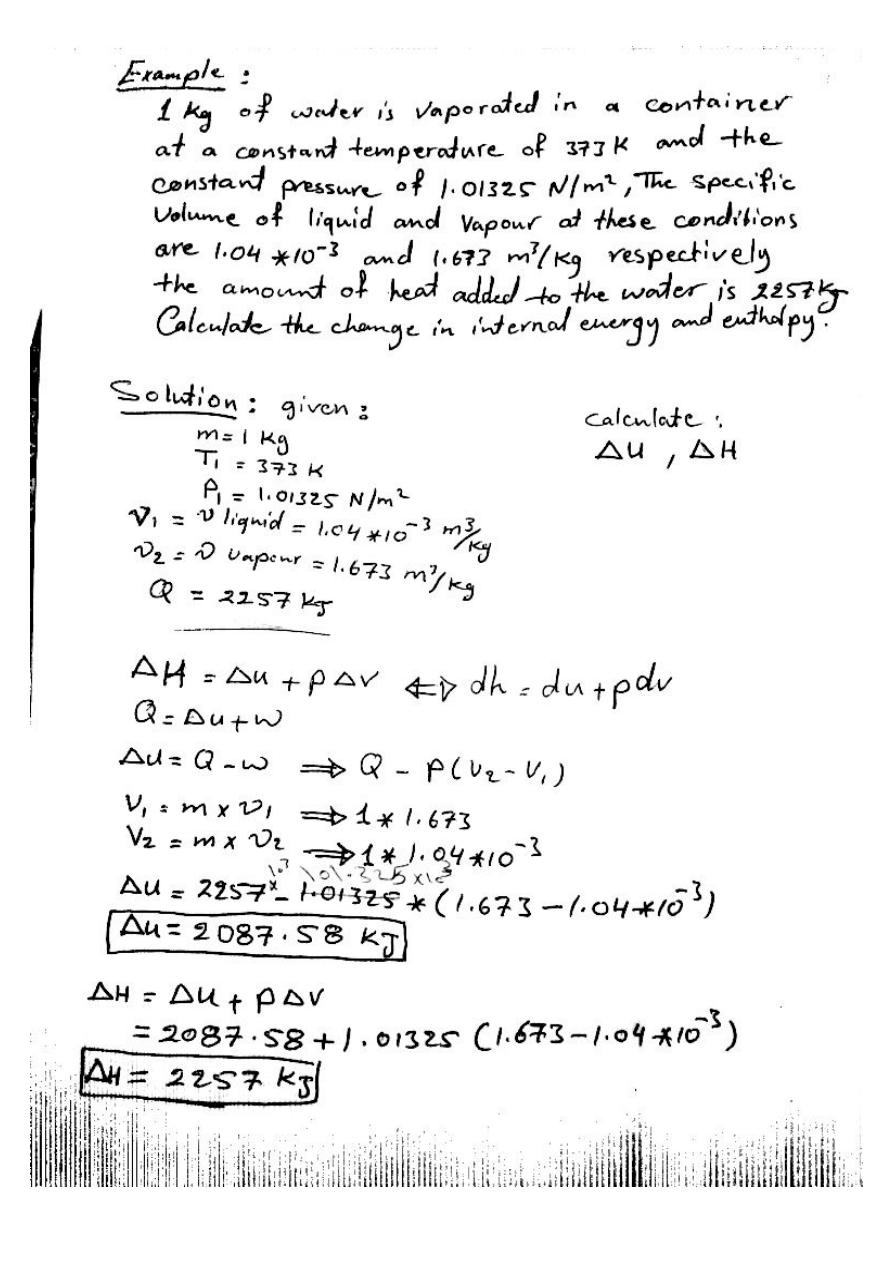 Example :
1 kg of water is vaporated in a container
at a constant temperature of 373 K and the
constant pressure of 1.01325 N/m², The specific
Volume of liquid and Vapour at these conditions
are 1.04 *10⁻³ and 1.673 m³/kg respectively
the amount of heat added to the water is 2257 kJ
Calculate the change in internal energy and enthalpy?
Solution : given :
calculate :
m = 1 kg
ΔU , ΔH
T₁ = 373 K
P₁ = 1.01325 N/m²
v₁ = v liquid = 1.04 *10⁻³ m³/kg
v₂ = v vapour = 1.673 m³/kg
Q = 2257 kJ
ΔH = Δu + p Δv ⇔ dh = du + pdv
Q = Δu + w
Δu = Q - w ⇒ Q - P(V₂ - V₁)
V₁ = m x v₁ ⇒ 1 * 1.673
V₂ = m x v₂ ⇒ 1 * 1.04 *10⁻³
x10³ 101.325 x10³
Δu = 2257 - 1.01325 * (1.673 - 1.04 *10⁻³)
Δu = 2087.58 kJ
ΔH = Δu + p Δv
= 2087.58 + 1.01325 (1.673 - 1.04 *10⁻³)
ΔH = 2257 kJ